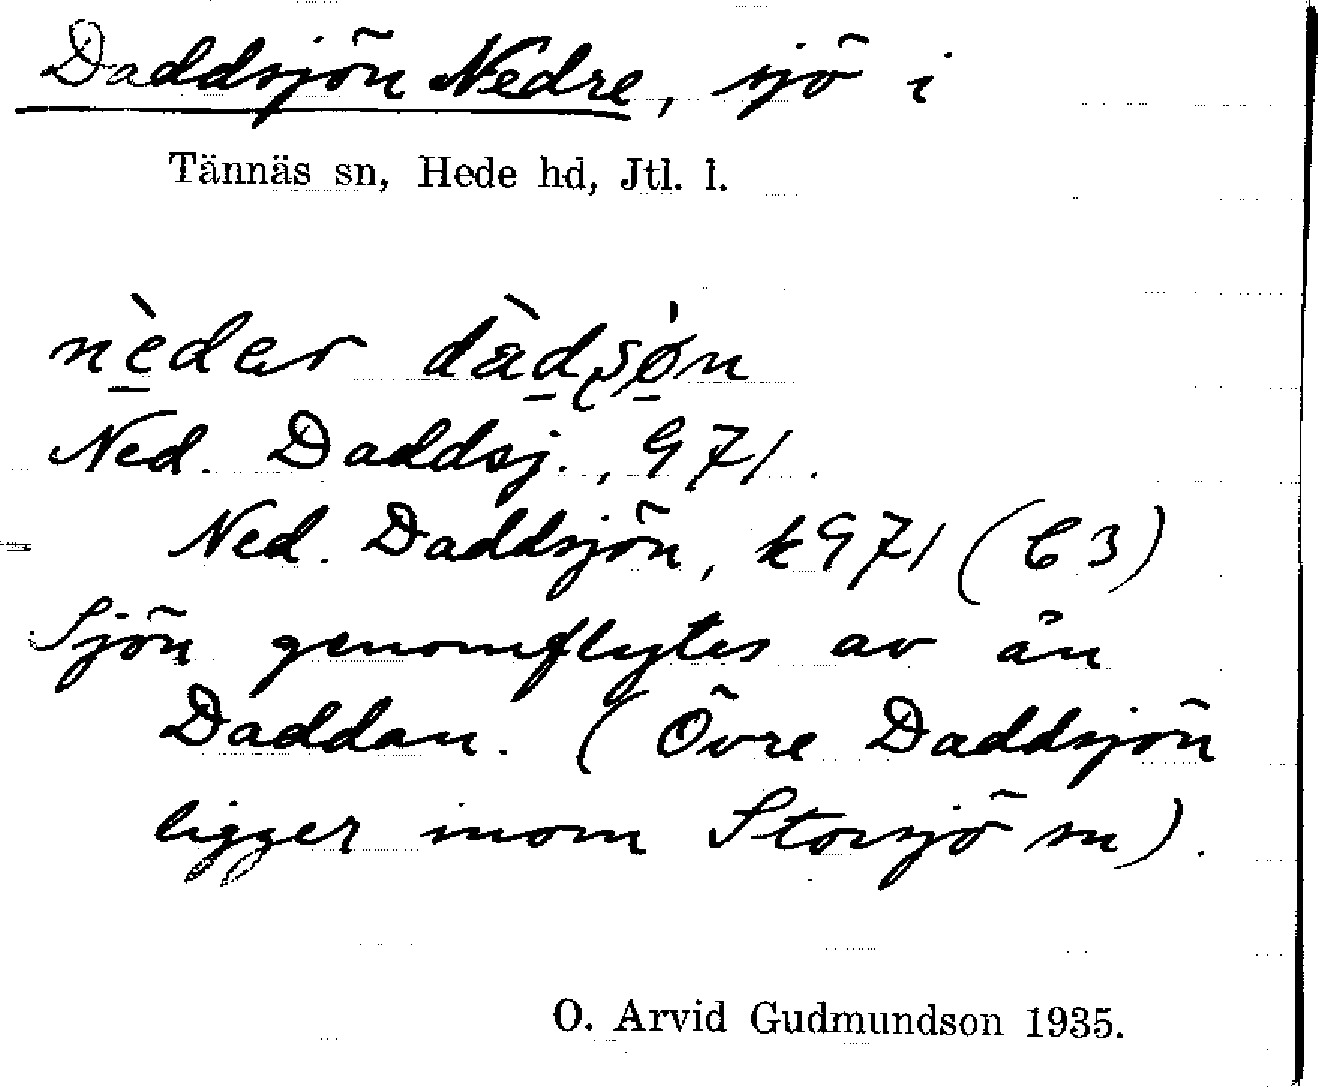 Daddsjön Nedre, sjö i
Tännäs sn, Hede hd, Jtl. l.
nèder dàdʂø̀n
Ned. Daddsj., G 71.
Ned. Daddsjön, kG 71 (C 3)
Sjön genomflytes av ån
Daddan. (Övre Daddsjön
ligger inom Storsjö sn).
O. Arvid Gudmundson 1935.